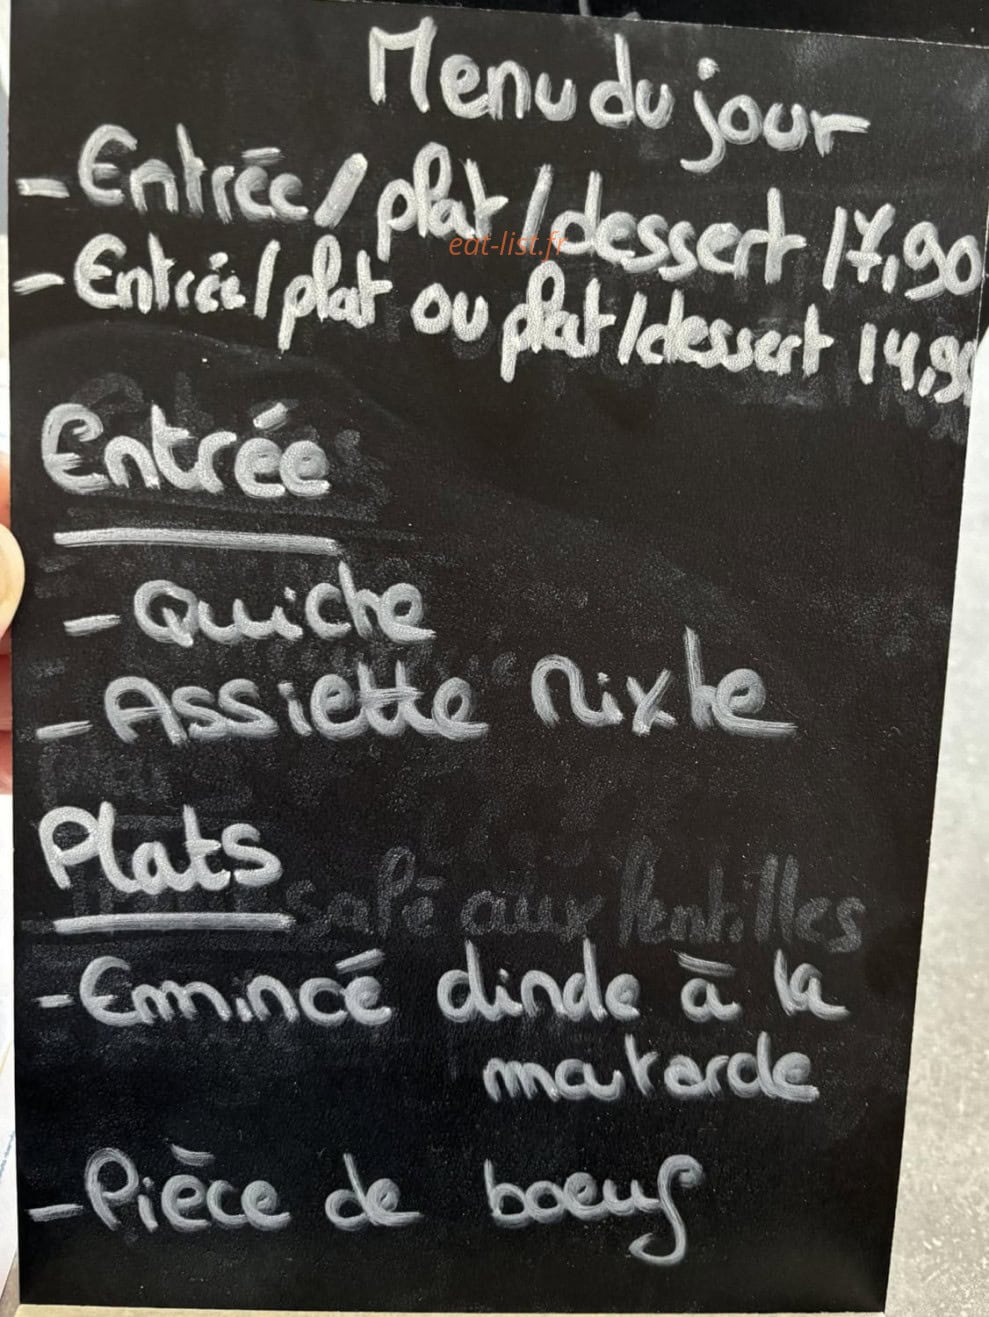 Menu du jour
- Entrée / plat / dessert 17,90
- Entrée / plat ou plat / dessert 14,90
eat-list.fr
Entrée
- Quiche
- Assiette Mixte
Plats
salé aux lentilles
- Emincé dinde à la
moutarde
- Pièce de boeuf